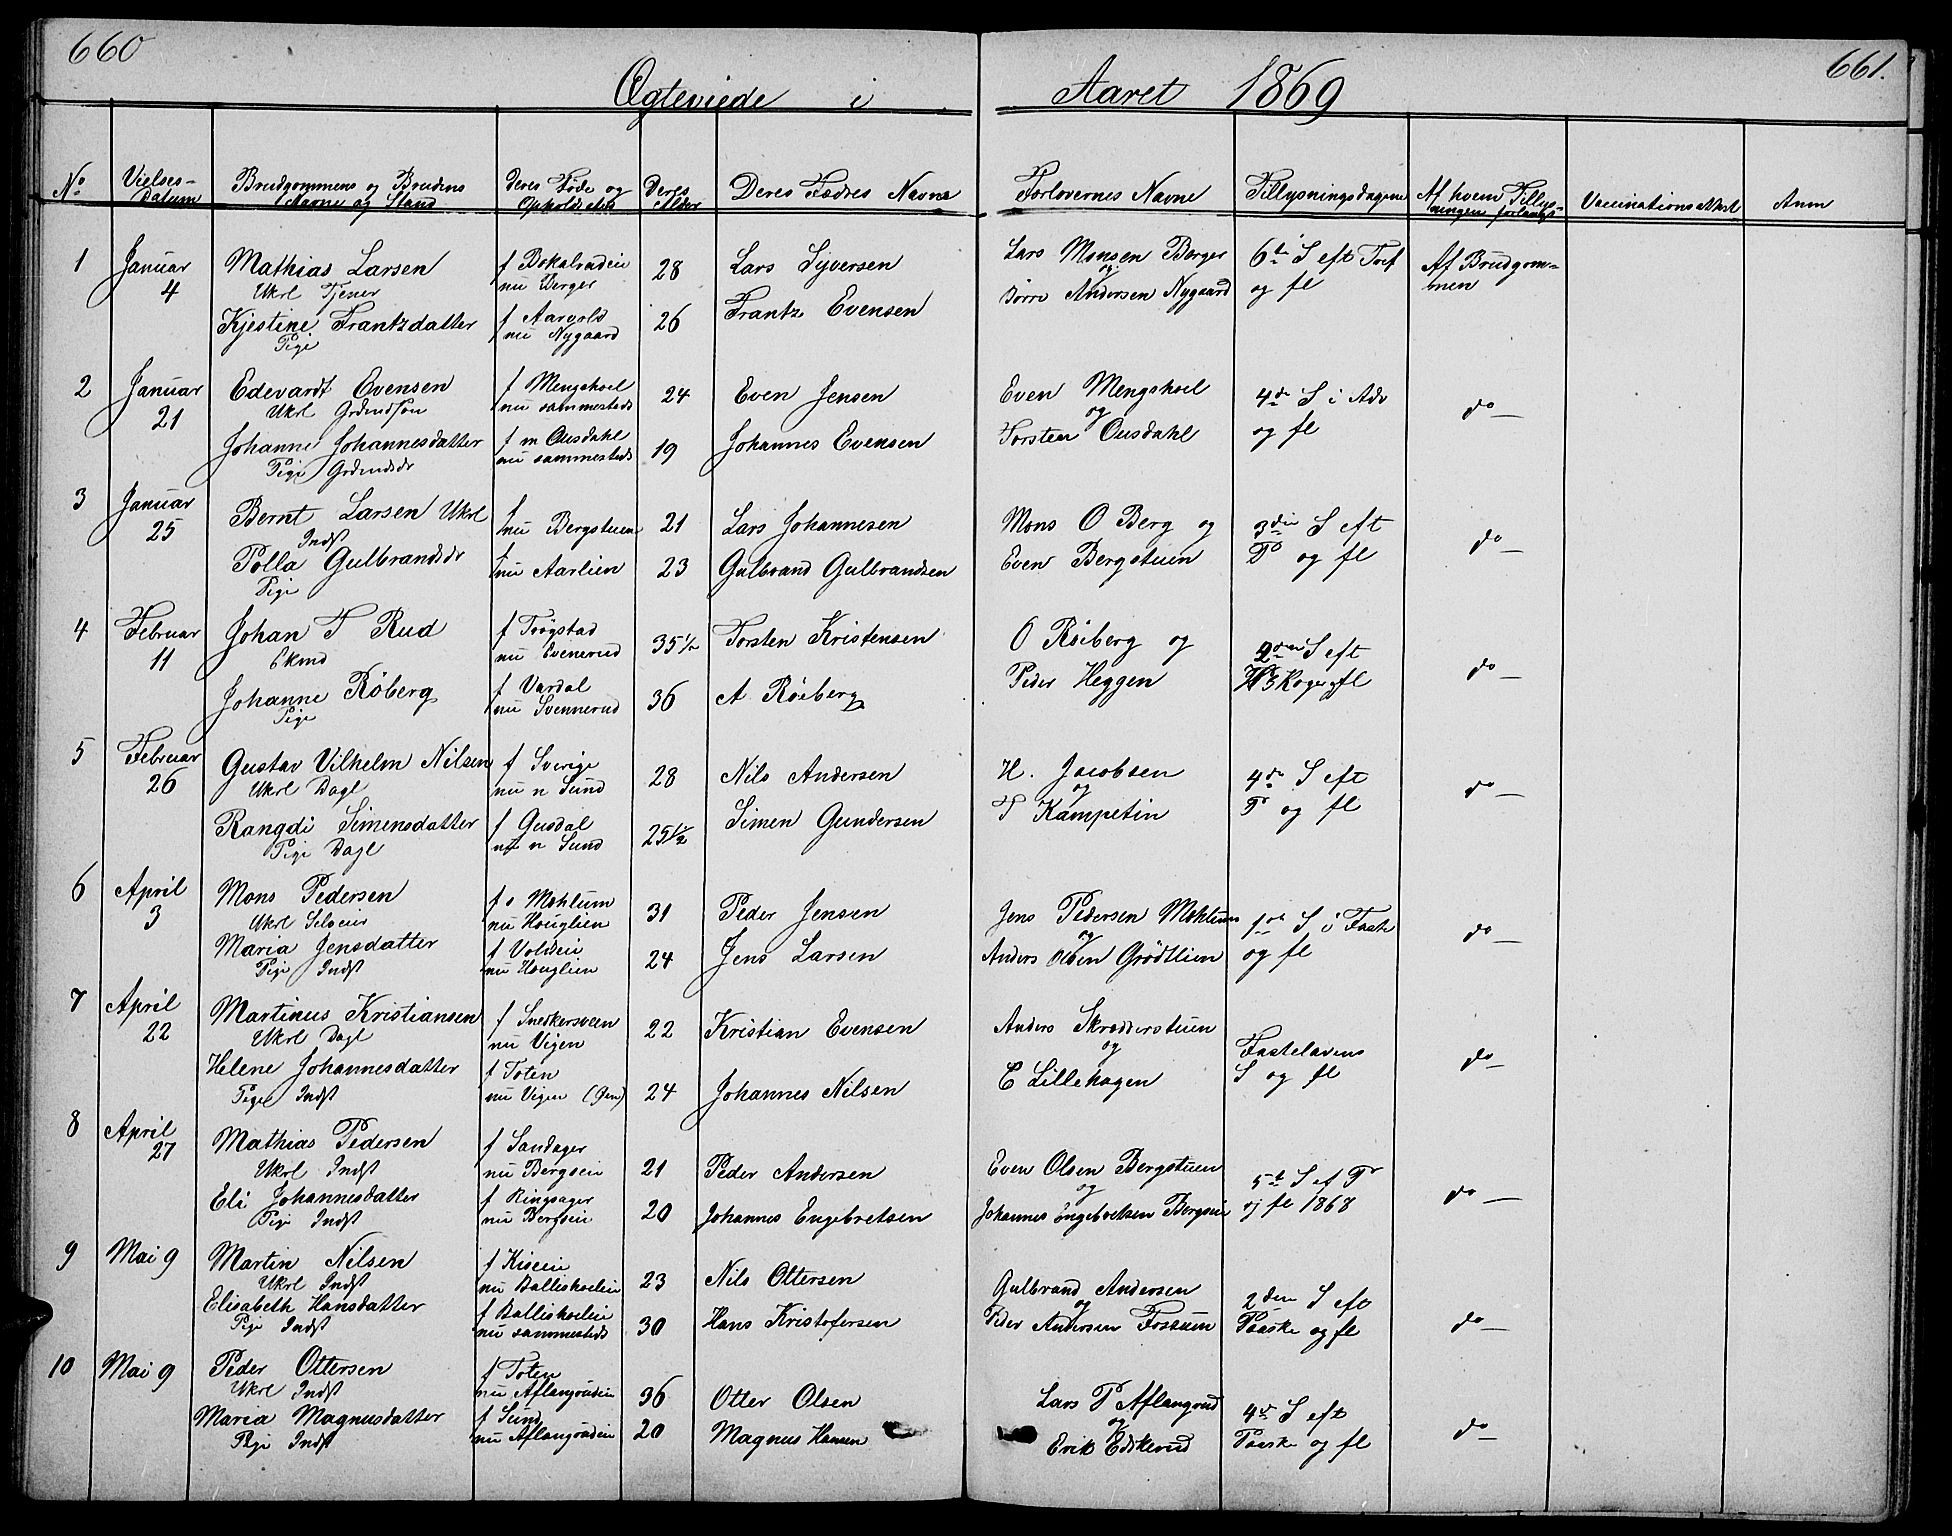 660
661.
Ægteviede i Aaret 1869
No
Vielses-
Datum
Brudgommens og Brudens
Navne og Stand
Deres Føde og
Opholdssted
Deres
Alder
Deres Fædres Navne
Forlovernes Navne
Tillysningsdagene
Af hvem Tillys-
ningen forlangt
Vaccinations Attest
Anm
1 Januar 4
Mathias Larsen
Ukrl Tjener
f
nu Berger
28
Lars Syversen
Kjestine Frantzdatter
Pige
f Aarvold
nu Nygaard
26
Frantz Evensen
Lars Monsen Berger
og
Børre Andersen Nygaard
6te S eft Tref
og fl
Af Brudgom-
men
2 Januar 21
Edevardt Evensen
Ukrl Grdmdsøn
f Mengshoel
nu sammesteds
24
Even Jensen
Johanne Johannesdatter
Pige Grdmdsdr
f m Ousdahl
nu sammesteds
19
Johannes Evensen
Even Mengshoel
og
Torsten Ousdahl
4de S i Adv
og fl
do
3 Januar 25
Bernt Larsen Ukrl
Indst
f
nu Bergstuen
21
Lars Johannesen
Polla Gulbrandsdr
Pige
f
nu Aarlien
23
Gulbrand Gulbrandsen
Mons O Berg og
Even Bergstuen
3die S eft
Tr og fl
do
4 Februar 11
Johan T Rud
Ekmd
f Trøgstad
nu Evenerud
35 1/2
Torsten Kristensen
Johanne Røberg
Pige
f Vardal
nu Svennerud
36
A Røberg
O Røiberg og
Peder Heggen
2den S eft
H 3 Koger og fl
do
5 Februar 26
Gustav Vilhelm Nilsen
Ukrl Dagl
f Sverige
nu n Sund
28
Nils Andersen
Rangdi Simensdatter
Pige Dagl
f Gusdal
nu n Sund
25 1/2
Simen Gundersen
H. Jacobsen
og
T Kampetin
4de S eft
Tr og fl
do
6 April 3
Mons Pedersen
Ukrl Selveier
f ø Mæhlum
nu Houglien
31
Peder Jensen
Maria Jensdatter
Pige Indst
f Voldeie
nu Houglien
24
Jens Larsen
Jens Pedersen Mæhlum
og
Anders Olsen Grødtlien
1ste S i Faste
og fl
do
7 April 22
Martinus Kristiansen
Ukrl Dagl
f Snekkersveen
nu Vigen
22
Kristian Evensen
Helene Johannesdatter
Pige Indst
f Toten
nu Vigen
24
Johannes Nilsen
Anders Skrædderstuen
og
C Lillehagen
Fastelavens
S og fl
do
8 April 27
Mathias Pedersen
Ukrl Indst
f Sandager
nu Bergseie
21
Peder Andersen
Eli Johannesdatter
Pige Indst
f Ringsager
nu Bergseie
20
Johannes Engebretsen
Even Olsen Bergstuen
og
Johannes Engebretsen Bergseie
5te S ef Tr
og fl 1868
do
9 Mai 9
Martin Nilsen
Ukrl Indst
f Kiseie
nu Balleshoeleie
23
Nils Ottersen
Elisabeth Hansdatter
Pige Indst
f Balleshoeleie
nu sammesteds
30
Hans Kristofersen
Gulbrand Andersen
og
Peder Andersen Fossum
2den S eft
Paaske og fl
do
10 Mai 9
Peder Ottersen
Ukrl Indst
f Toten
nu Aflangrudeie
36
Otter Olsen
Maria Magnusdatter
Pige Indst
f Sund
nu Aflangrudeie
20
Magnus Hansen
Lars P Aflangrud
og
Erik Edskerud
4de S eft
Paaske og fl
do